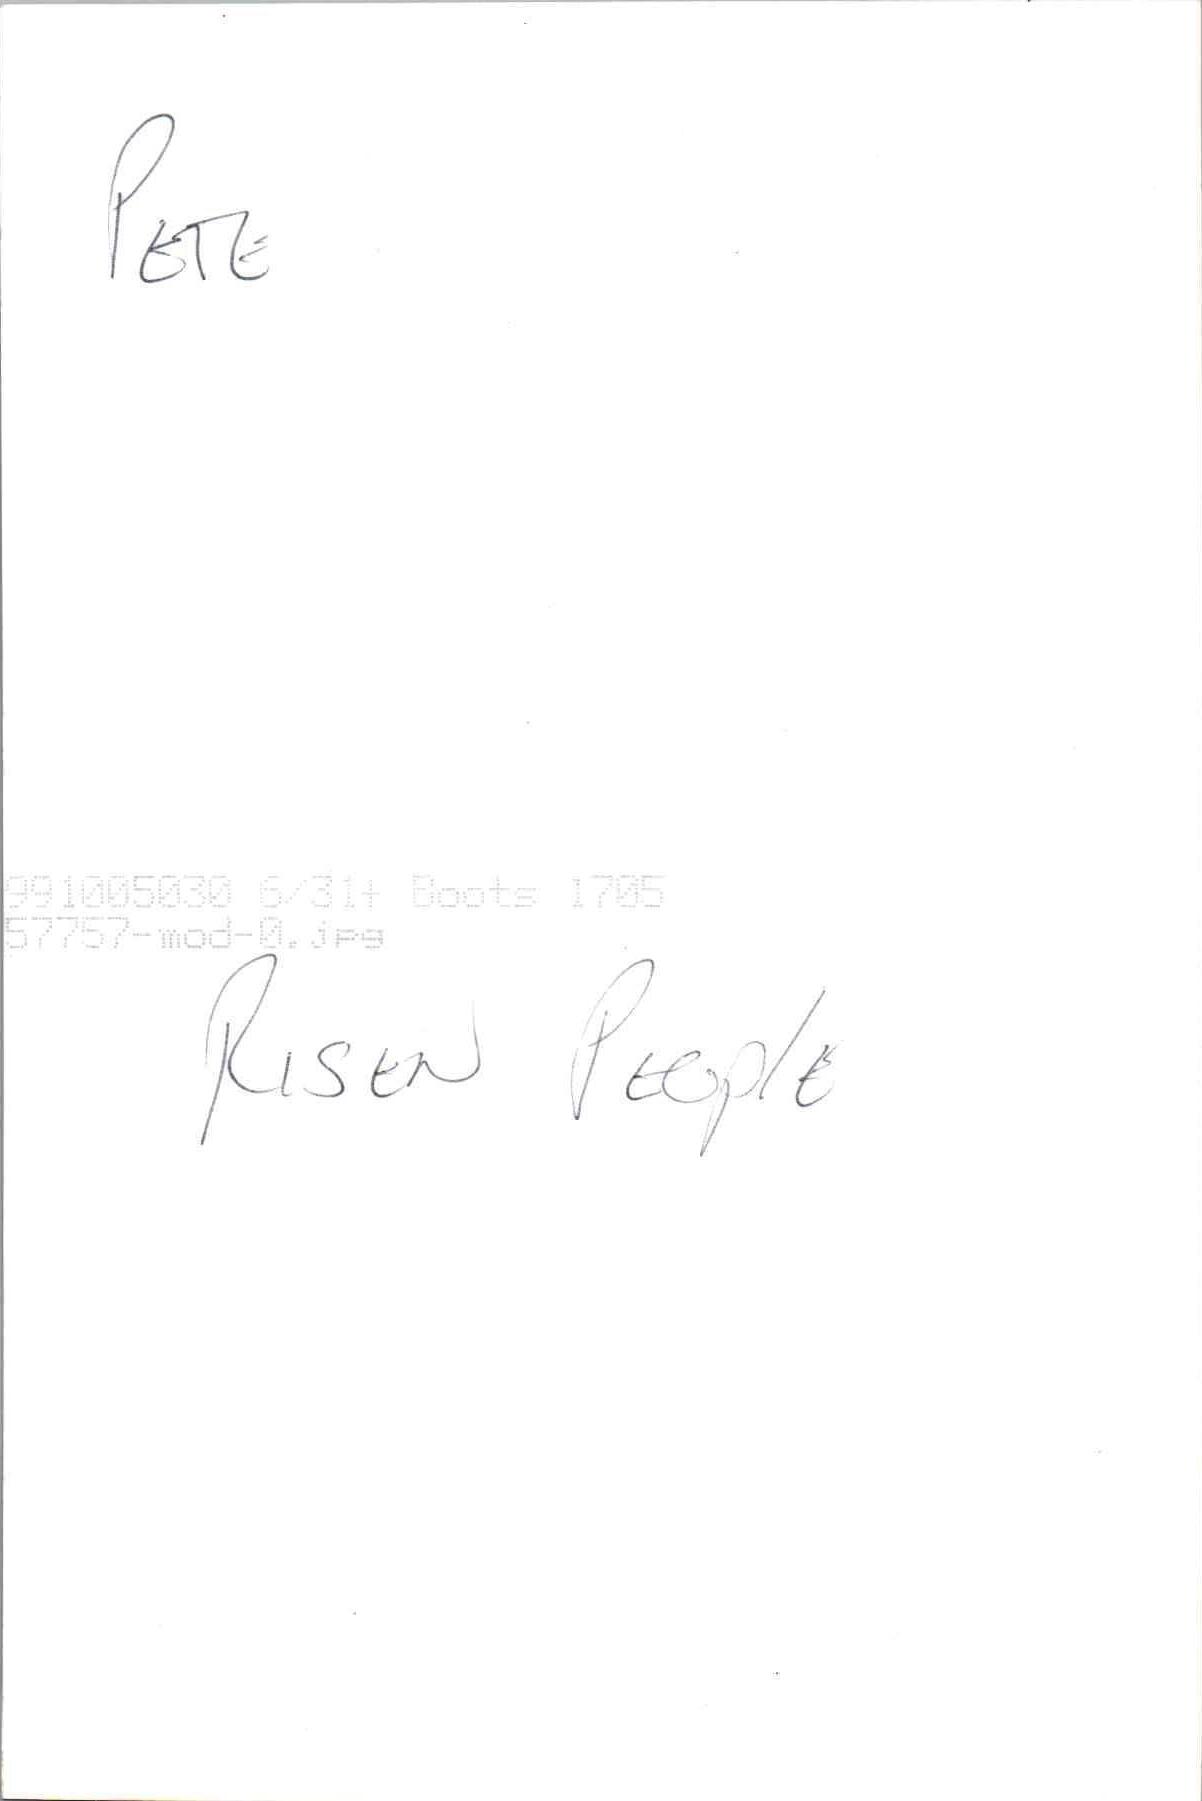 PETE
991005030 6/31+ Boots 1705
57757-mod-0.jpg
RISEN PEOPlE